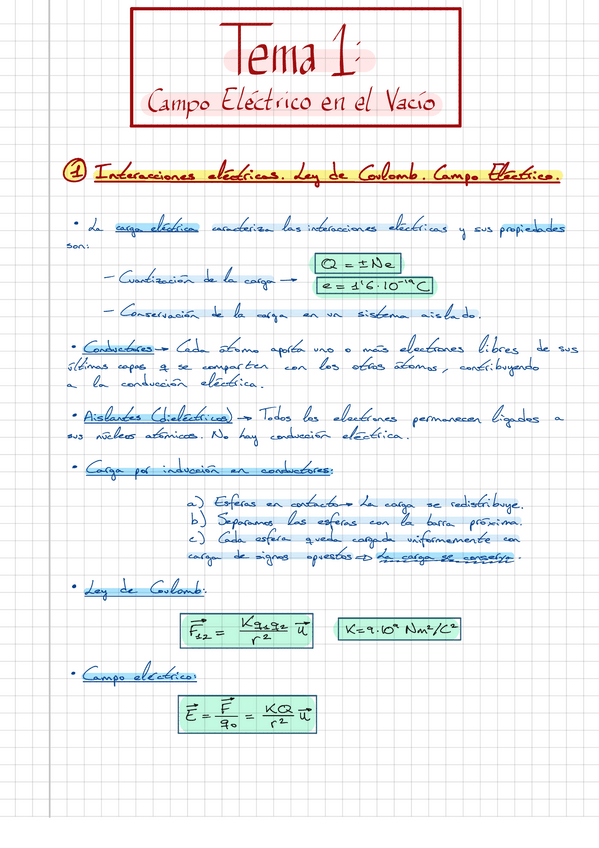 Tema 1:
Campo Eléctrico en el Vacío
① Interacciones eléctricas. Ley de Coulomb. Campo Eléctrico.
• La carga eléctrica caracteriza las interacciones eléctricas y sus propiedades
son:
– Cuantización de la carga → Q = ±Ne
e = 1'6·10⁻¹⁹ C
– Conservación de la carga en un sistema aislado.
• Conductores → Cada átomo aporta uno o más electrones libres de sus
últimas capas q se comparten con los otros átomos, contribuyendo
a la conducción eléctrica.
• Aislantes (dieléctricos) → Todos los electrones permanecen ligados a
sus núcleos atómicos. No hay conducción eléctrica.
• Carga por inducción en conductores:
a) Esferas en contacto → La carga se redistribuye.
b) Separamos las esferas con la barra próxima.
c) Cada esfera queda cargada uniformemente con
carga de signos opuestos ⇒ La carga se conserva.
• Ley de Coulomb:
F⃗₁₂ = Kq₁q₂/r² u⃗ K=9·10⁹ Nm²/C²
• Campo eléctrico:
E⃗ = F⃗/q₀ = KQ/r² u⃗